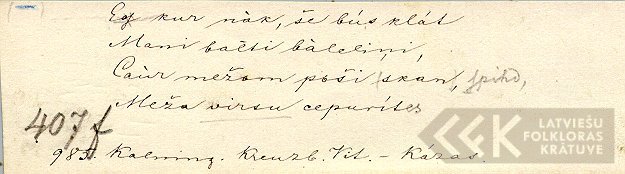 Eg kur nàk, še bús klát
Mani bałti bàleliņi,
Caùr mežom pøši skan, spihd,
Meža wirsu cepurítes
407f
983. Kalning. Kreuzb. Vit. - Kázas.
LATVIEŠU
FOLKLORAS
KRĀTUVE